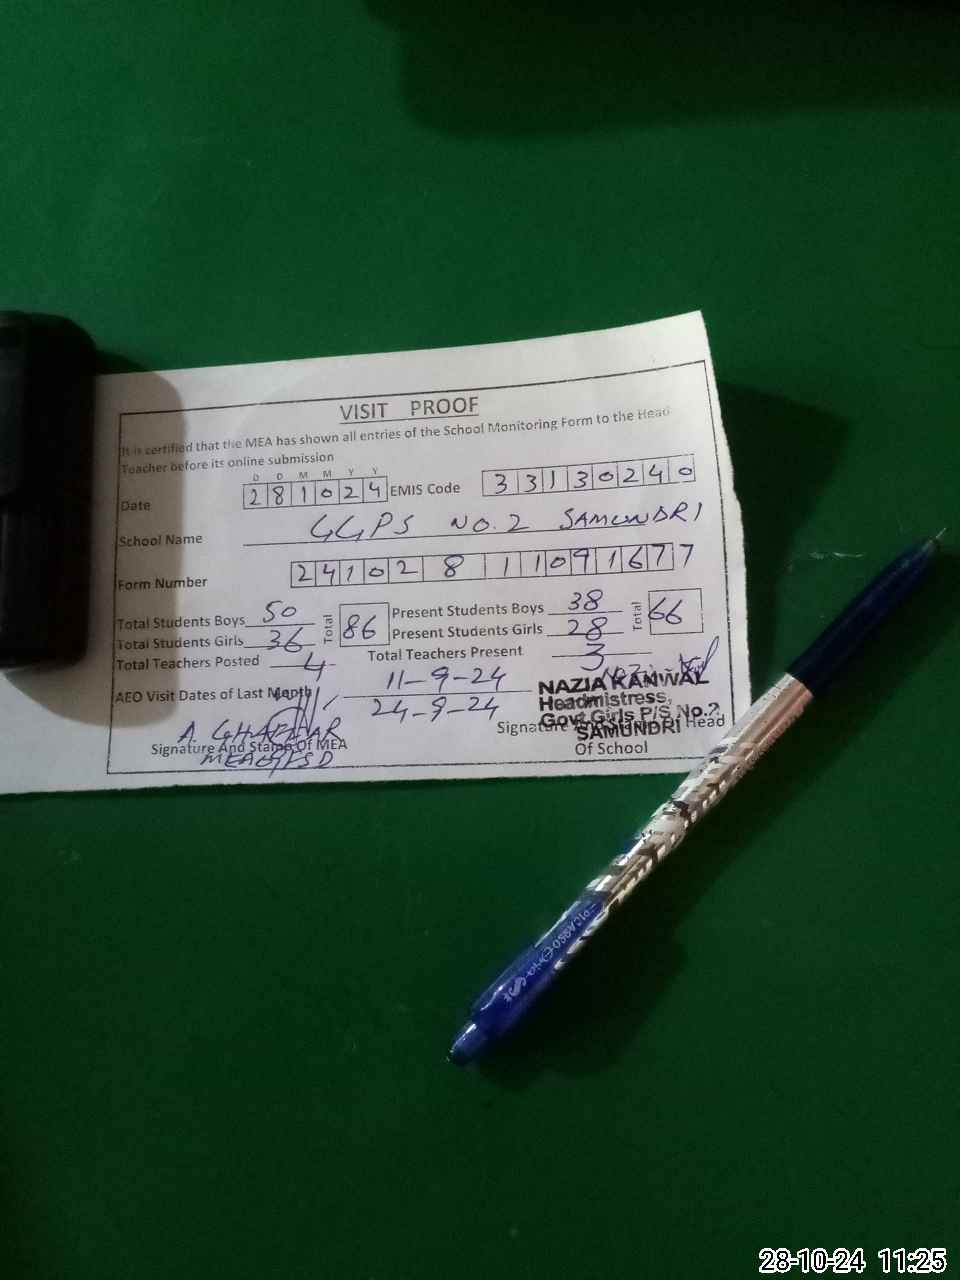 VISIT PROOF
It is certified that the MEA has shown all entries of the School Monitoring Form to the Head
Teacher before its online submission
D D M M Y Y
Date 281024 EMIS Code 33130240
School Name GGPS NO.2 SAMUNDRI
Form Number 2410281109 1677
Total Students Boys 50 Total 86 Present Students Boys 38 Total 66
Total Students Girls 36 Present Students Girls 28
Total Teachers Posted 4 Total Teachers Present 3
AEO Visit Dates of Last Month 11-9-24
24-9-24
NAZIA KANWAL
Headmistress,
Govt Girls P/S No.2
SAMUNDRI
A. GHAFFAR
Signature And Stamp Of MEA
Signature And Stamp Of Head
Of School
PICASSO
28-10-24 11:25